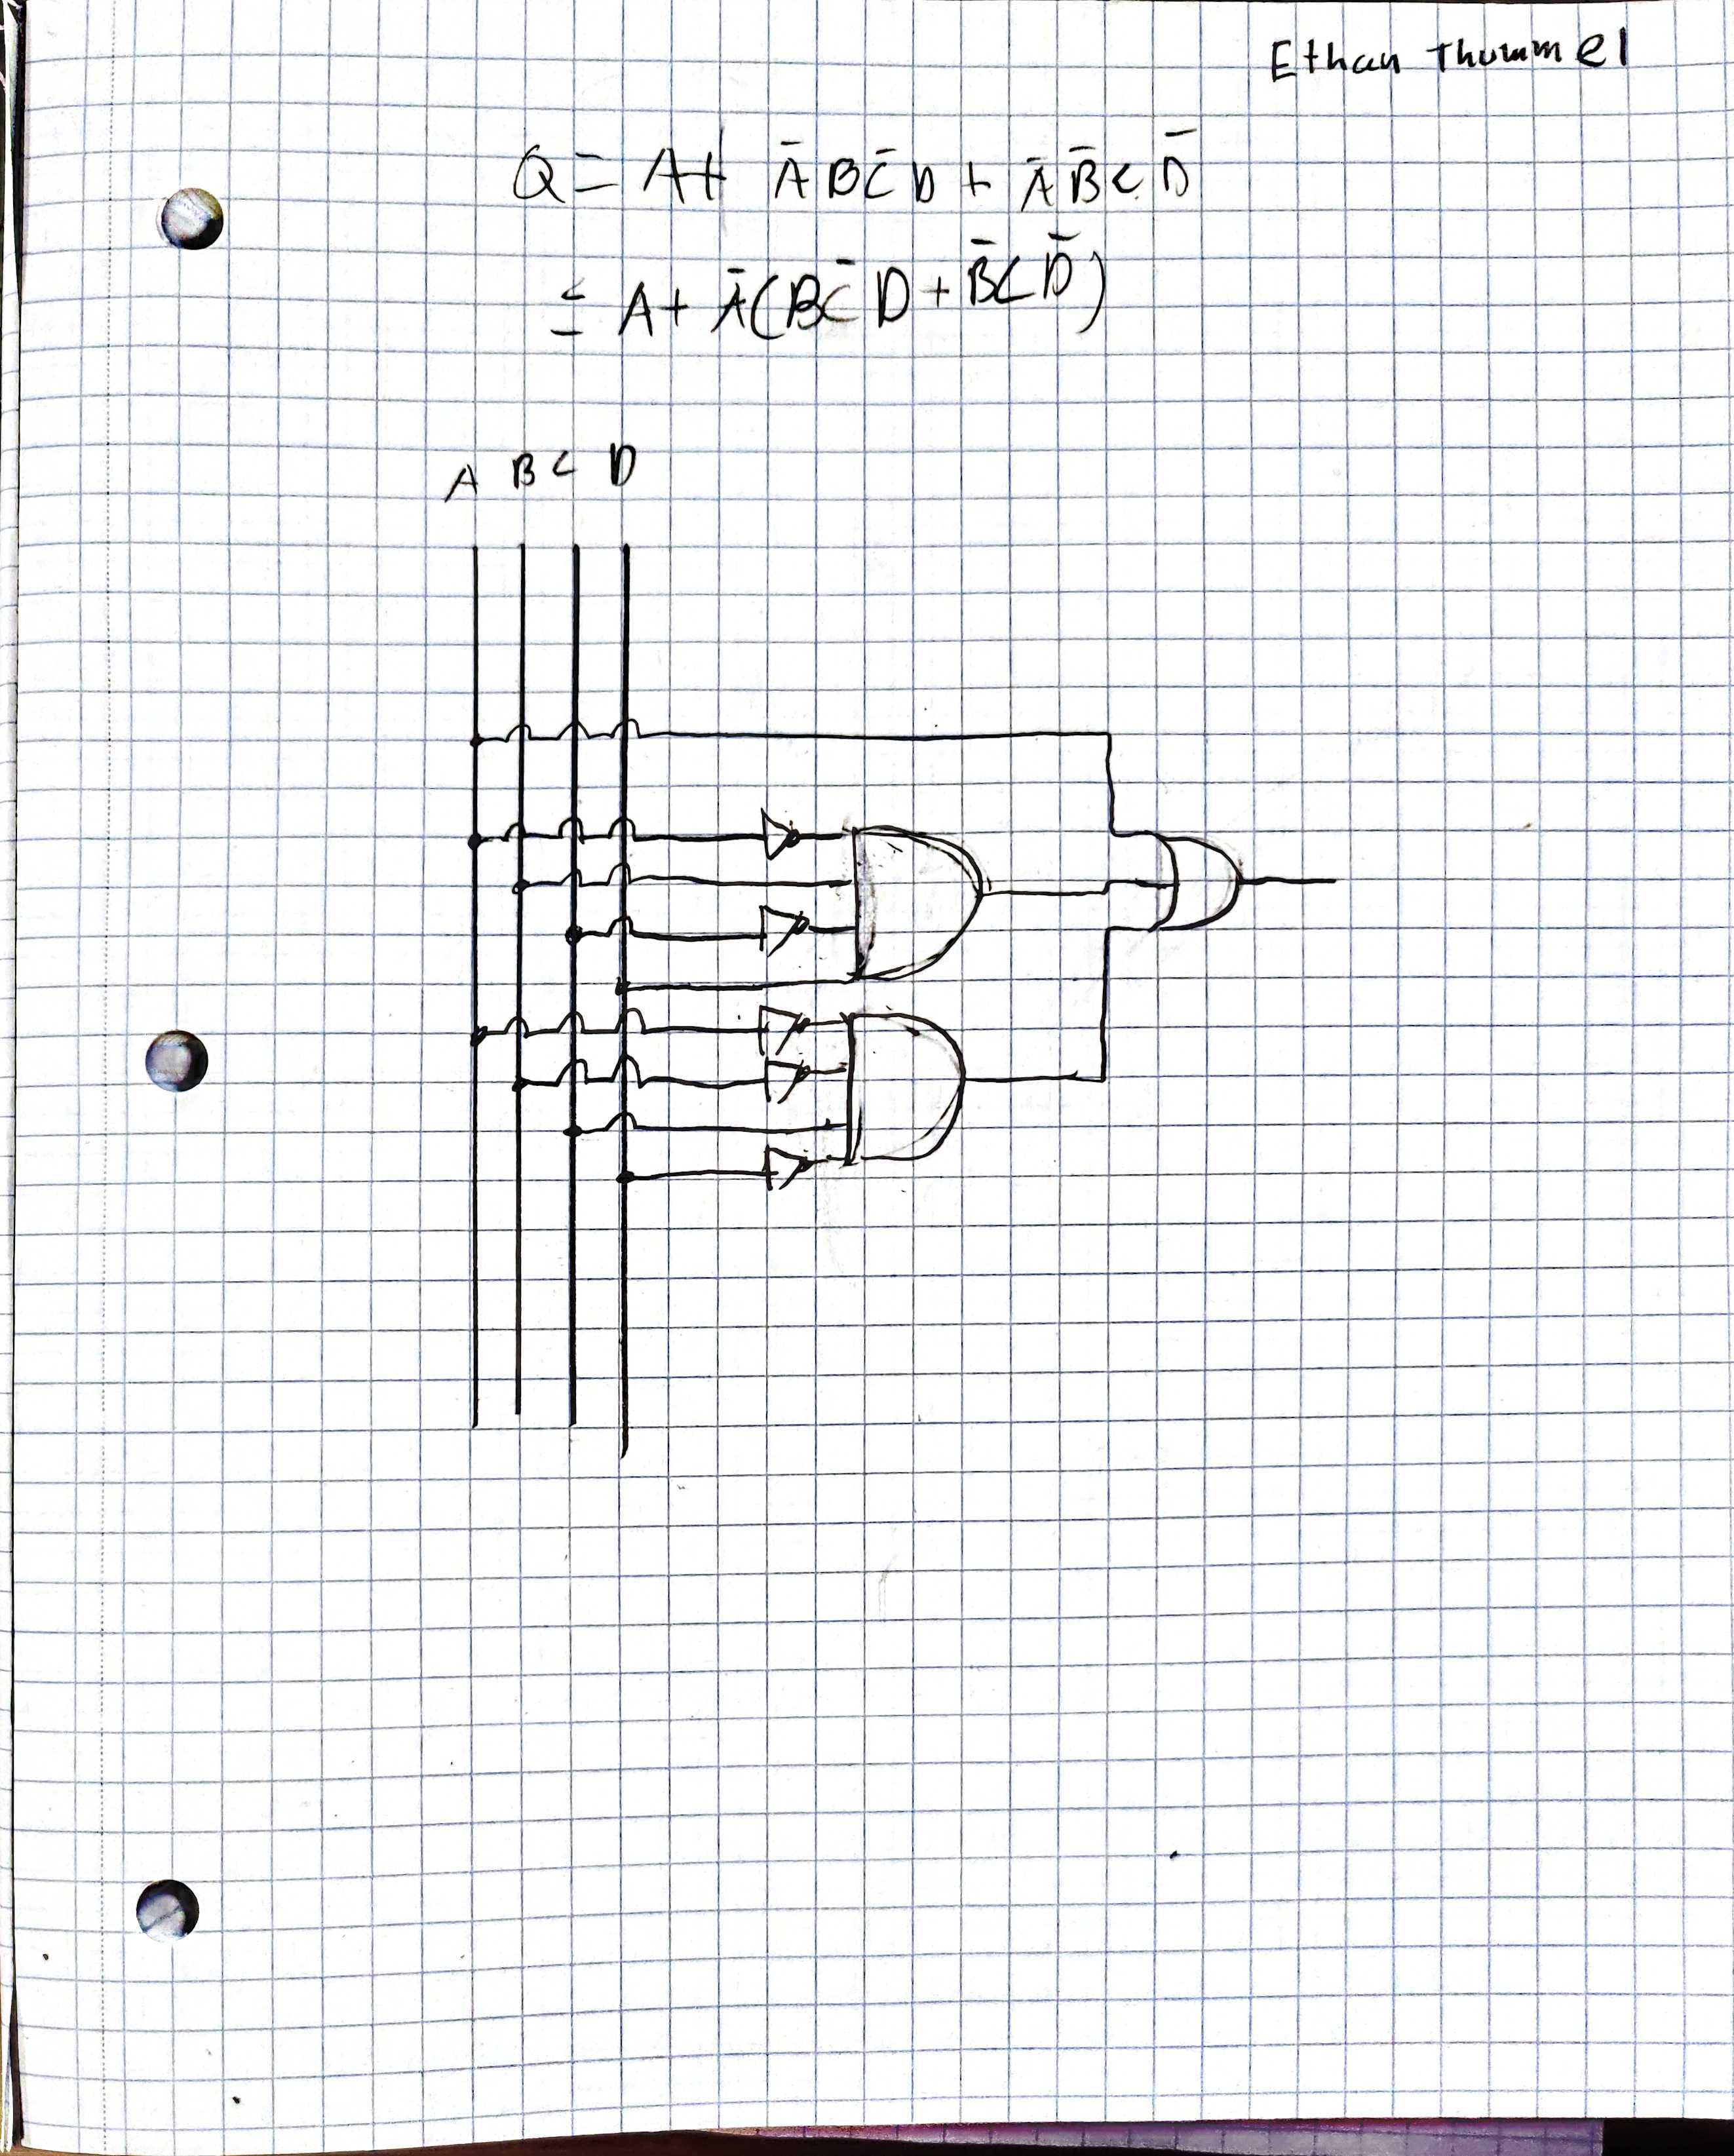 Ethan Thummel
Q = A + A̅ B C̅ D + A̅ B̅ C D̅
= A + A̅ ( B C̅ D + B̅ C D̅ )
A B C D